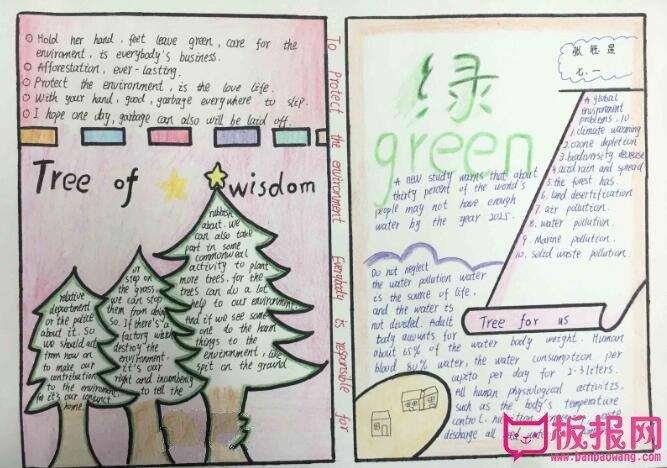 Hold her hand, feet leave green, care for the
enviroment, is everybody's business.
Afforestation, ever-lasting.
Protect the environment, is the love life.
With your hand, good, garbage everywhere to slip.
I hope one day, garbage can also will be laid off.
Tree of wisdom
rubbish
about. we
can also take
part in some
commonweal
activity to plant
more trees, for the
trees can do a lot
help to our environment
And if we see some
one do the harm
things to the
environment, like
spit on the ground
or
step on
the grass,
we can stop
them from doing
so. If there's a
factory which
destroy the
environment.
it's our
right and incumbency
to tell the
relative
department
or the police
about it. So
we should act
from now on
to make our
contribution
to the environment,
for it's our
home.
To Protect the environment Everybody is responsible for
绿
green
七.一
A new study warns that about
thirty percent of the world's
people may not have enough
water by the year 2025.
A global
environment
problems, 10.
1. climate warming
2. ozone depletion
3. biodiversity decrease
4. acid rain and spread
5. the forest has.
6. land desertification
7. air pollution.
8. water pollution.
9. Marine pollution.
10. solid waste pollution.
Tree for us
Do not neglect
the water pollution water
is the source of life,
and the water is
not divided. Adult
body accounts for
about 65% of the water body weight. Human
blood 80% water, the water consumption per
capita per day for 2-3 liters.
All human physiological activities,
such as the body's temperature
control,
discharge all
板报网
www.banbaowang.com